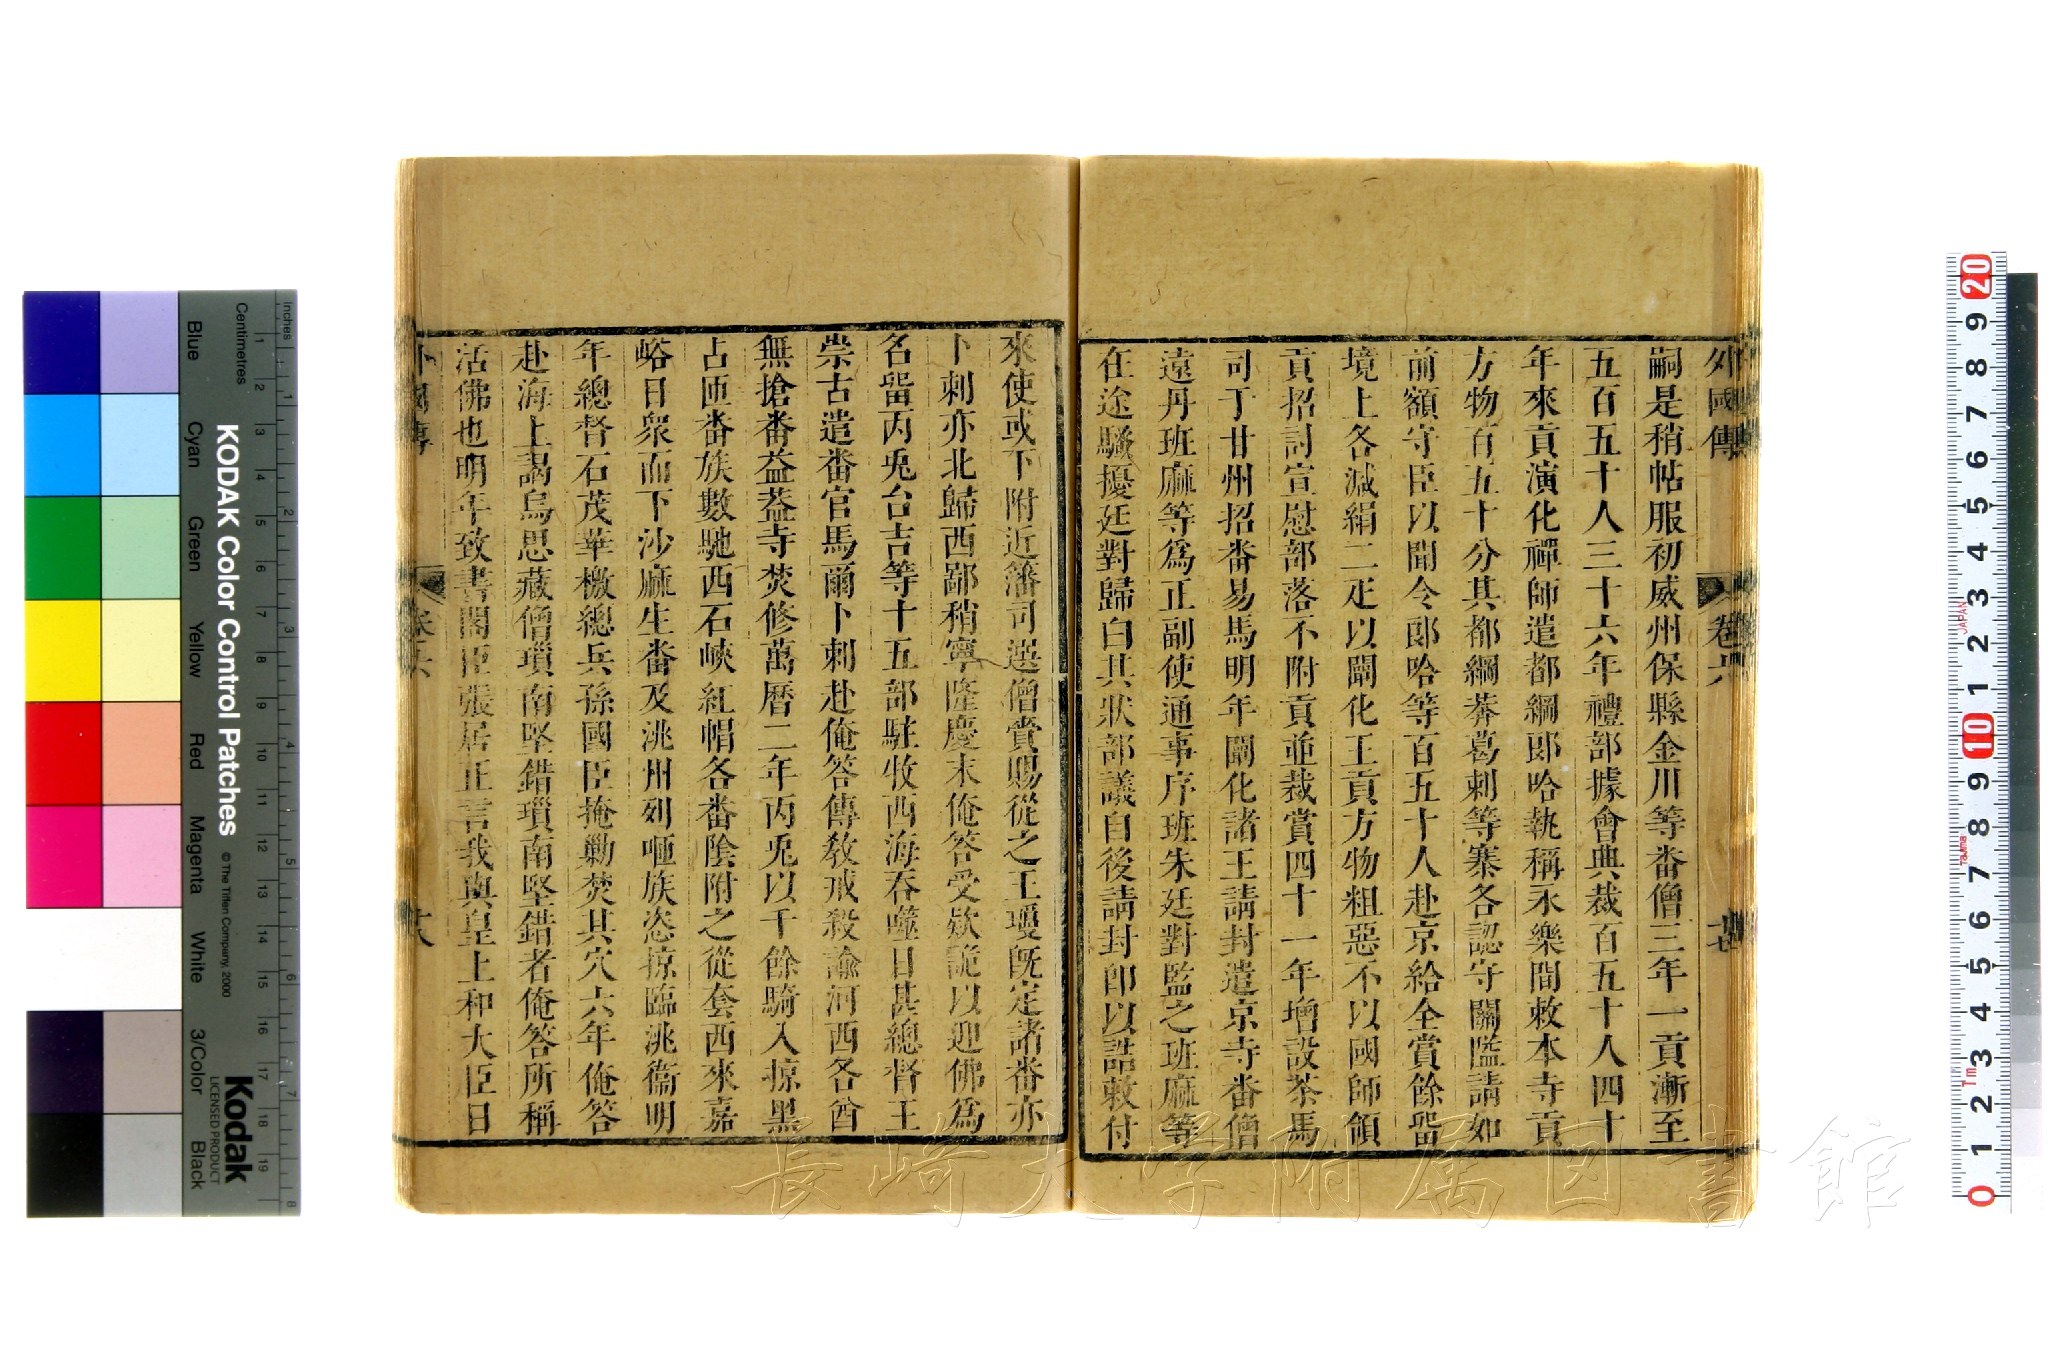 外國傳
卷六
嗣是稍帖服初威州保縣金川等番僧三年一貢漸至
五百五十人三十六年禮部據會典裁百五十人四十
年來貢演化禪師遣都綱郎哈執稱永樂間敕本寺貢
方物百五十分其都綱莽葛剌等寨各認守關隘請如
前額守臣以聞令郎哈等百五十人赴京給全賞餘留
境上各減絹二疋以闡化王貢方物粗惡不以國師領
貢招討宣慰部落不附貢並裁賞四十一年增設茶馬
司于甘州招番易馬明年闡化諸王請封遣京寺番僧
遠丹班麻等爲正副使通事序班朱廷對監之班麻等
在途騷擾廷對歸白其狀部議自後請封卽以誥敕付
來使或下附近籓司選僧賞賜從之王瓊旣定諸番亦
卜刺亦北歸西鄙稍寧隆慶末俺答受欵詭以迎佛爲
名留丙兎台吉等十五部駐牧西海吞噬日甚總督王
崇古遣番官馬爾卜刺赴俺答傳敎戒殺諭河西各酋
無搶番葢葢寺焚修萬曆二年丙兎以千餘騎入掠黑
占匝番族數馳西石峽紅帽各番陰附之從套西來嘉
峪日衆而下沙麻生番及洮州列咂族恣掠臨洮衞明
年總督石茂華檄總兵孫國臣掩勦焚其穴六年俺答
赴海上謁烏思藏僧瑣南堅錯瑣南堅錯者俺答所稱
活佛也明年致書閣臣張居正言我與皇上和大臣日
外國傳
卷六
長崎大学附属図書館
KODAK Color Control Patches
© The Tiffen Company, 2000
Kodak
LICENSED PRODUCT
Inches
Centimetres
Blue
Cyan
Green
Yellow
Red
Magenta
White
3/Color
Black
1 2 3 4 5 6 7 8 9 10 11 12 13 14 15 16 17 18 19
1 2 3 4 5 6 7 8
20 9 8 7 6 5 4 3 2 1 10 9 8 7 6 5 4 3 2 1 0
JAPAN
Tajima